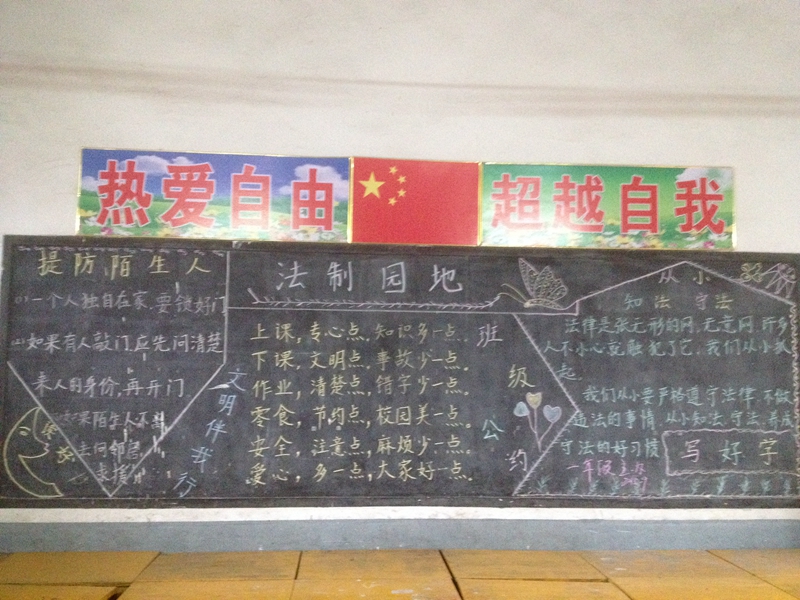 热爱自由
超越自我
提防陌生人
(1)一个人独自在家,要锁好门
(2)如果有人敲门,应先问清楚
来人的身份,再开门
如果陌生人不
去向邻居
求援
文明伴我行
法制园地
上课,专心点,知识多一点。
下课,文明点,事故少一点。
作业,清楚点,错字少一点。
零食,节约点,校园美一点。
安全,注意点,麻烦少一点。
爱心,多一点,大家好一点。
班级公约
从小
知法 守法
法律是张无形的网,无意间,许多
人不小心就触犯了它,我们从小就
起
我们从小要严格遵守法律,不做
违法的事情,从小知法、守法,养成
守法的好习惯
写好字
一年级